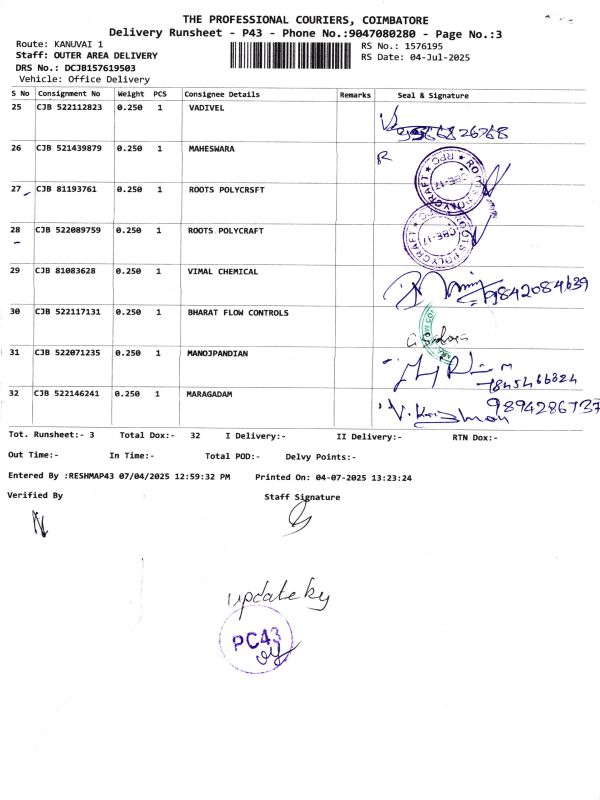 THE PROFESSIONAL COURIERS, COIMBATORE
Delivery Runsheet - P43 - Phone No.:9047080280 - Page No.:3
Route: KANUVAI 1
RS No.: 1576195
Staff: OUTER AREA DELIVERY
RS Date: 04-Jul-2025
DRS No.: DCJB157619503
Vehicle: Office Delivery
S No Consignment No Weight PCS Consignee Details Remarks Seal & Signature
25 CJB 522112823 0.250 1 VADIVEL
26 CJB 521439879 0.250 1 MAHESWARA R
27 CJB 81193761 0.250 1 ROOTS POLYCRSFT ROOTS POLYCRAFT RPC CBE-17
28 CJB 522089759 0.250 1 ROOTS POLYCRAFT ROOTS POLYCRAFT CBE-17
29 CJB 81083628 0.250 1 VIMAL CHEMICAL 9842084639
30 CJB 522117131 0.250 1 BHARAT FLOW CONTROLS
31 CJB 522071235 0.250 1 MANOJPANDIAN
32 CJB 522146241 0.250 1 MARAGADAM 9894286737
Tot. Runsheet:- 3 Total Dox:- 32 I Delivery:- II Delivery:- RTN Dox:-
Out Time:- In Time:- Total POD:- Delvy Points:-
Entered By :RESHMAP43 07/04/2025 12:59:32 PM Printed On: 04-07-2025 13:23:24
Verified By Staff Signature
update by
PC43